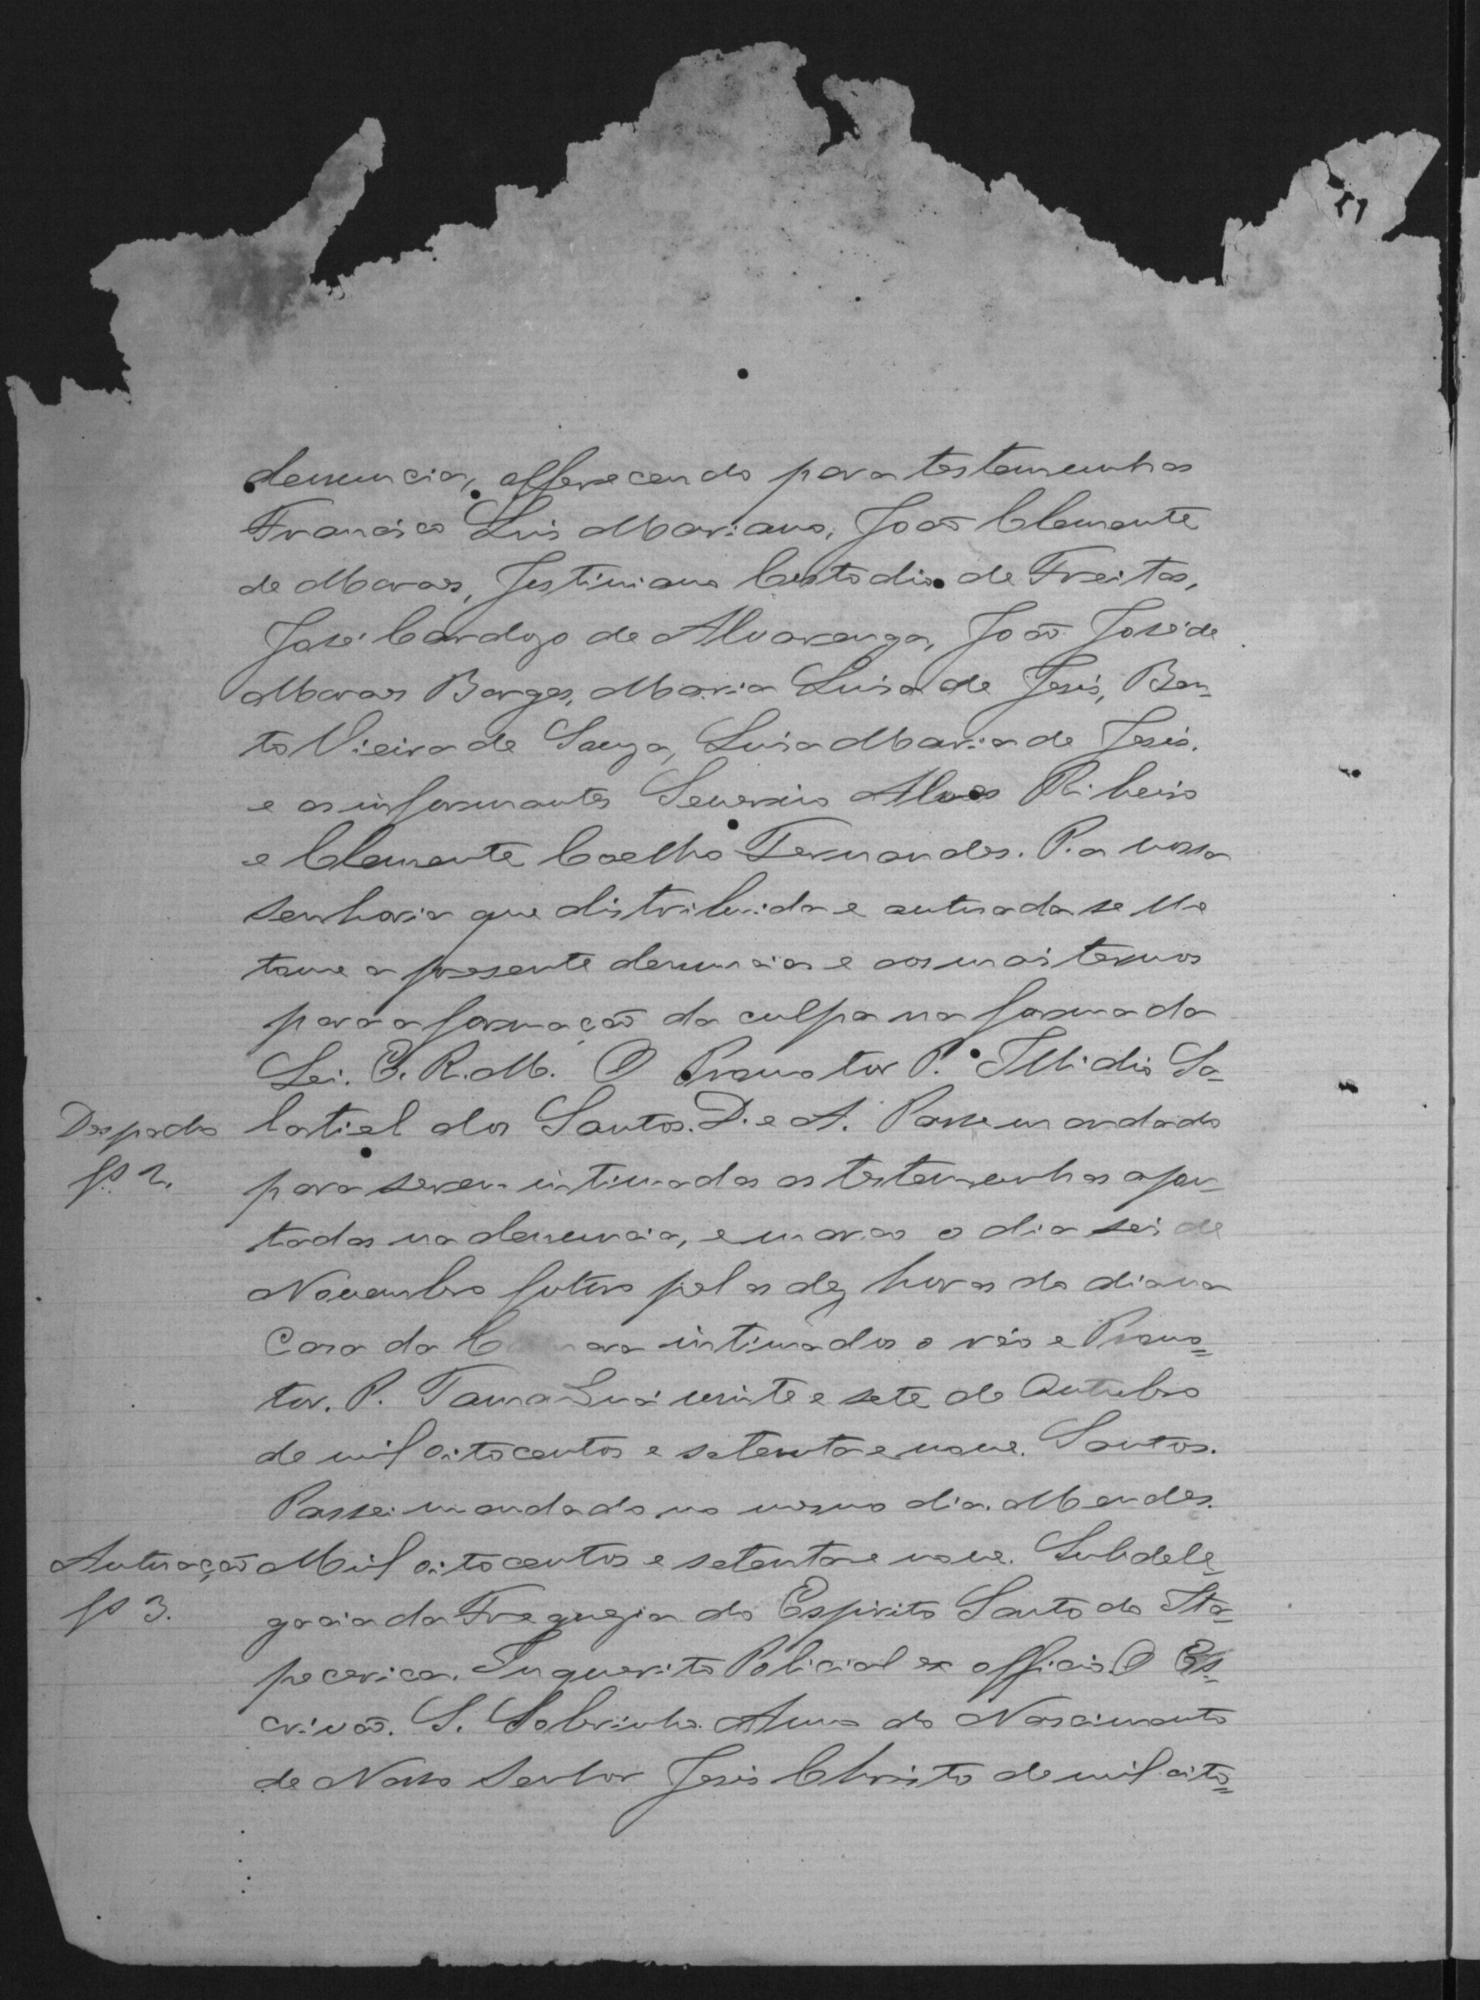 denuncia, offerecendo para testemunhas
Francisco Luis Mariano, João Clemente
de Moraes, Justiniano Custodio de Freitas,
José Cardozo de Alvarenga, João José de
Moraes Borges, Maria Luisa de Jesús, Ben-
to Vieira de Souza, Luisa Maria de Jesús.
e os informantes Severino Alves Ribeiro
e Clemente Coelho Fernandes. P. a vossa
senhoria que distribuida e autuada se lhe
tome a presente denuncia e aos mais termos
para a formação da culpa na forma da
Lei. E. R. M. O Promotor P. Illidio Sa-
Despacho
latiel dos Santos. D. e A. Passe mandado
fs 2.
para serem intimadas as testemunhas apon-
tadas na denuncia, e marco o dia seis de
Novembro futuro pelas dez horas do dia na
Casa da intimados o réo e Promo=
tor. P. Tamanduá vinte e sete de Outubro
de mil oitocentos e setenta e nove. Santos.
Passei mandado no mesmo dia. Mendes.
Autuação
Mil oitocentos e setenta e nove. Subdele=
fs 3.
gacia da Freguezia do Espirito Santo do Ita=
pecerica. Inquerito Policial ex officio. O Es=
crivão. S. Sobrinho. Anno do Nascimento
de Nosso Senhor Jesús Christo de mil oito=